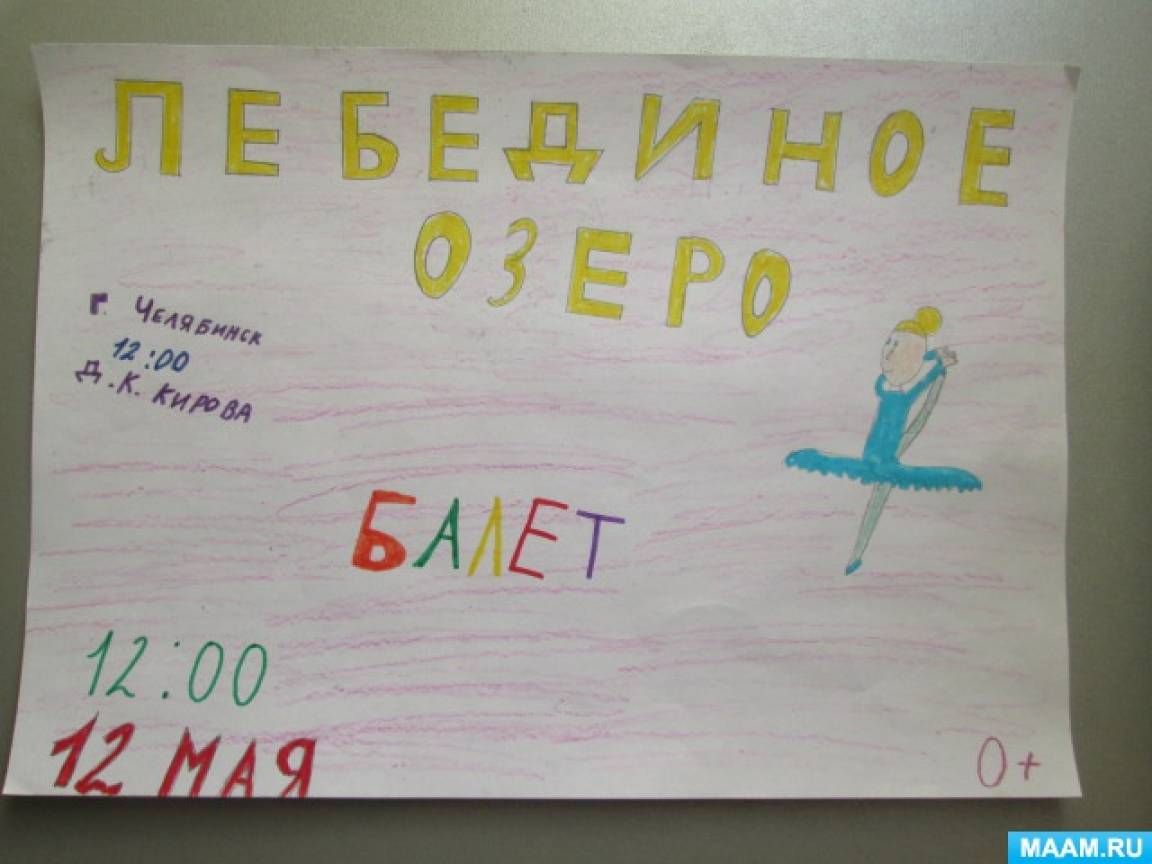 ЛЕБЕДИНОЕ
ОЗЕРО
г. ЧЕЛЯБИНСК
12:00
Д.К. КИРОВА
БАЛЕТ
12:00
12 МАЯ
0+
MAAM.RU